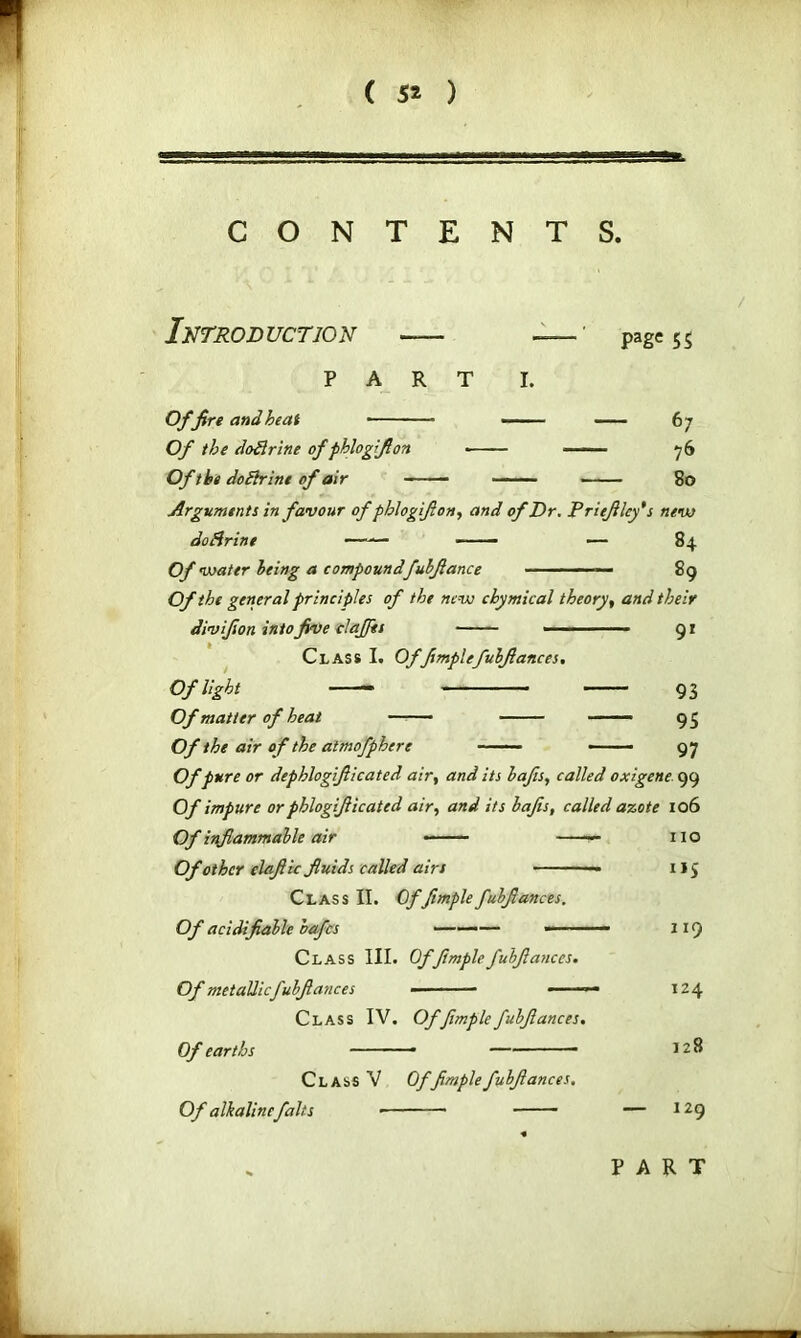 ( 52 )
CONTENTS.
INTRODUCTION —— ——' page 55
PART I.
Of fire and heat —— —— —— 67
Of the doctrine of phlogiſton —— —— 76
Of the doctrine of air —— —— —— 80
Arguments in favour of phlogiſton, and of Dr. Prieſtley's new
doctrine —— —— — 84
Of water being a compound ſubſtance —— 89
Of the general principles of the new chymical theory, and their
diviſion into five claſſes —— —— 91
CLASS I. Of ſimple ſubſtances.
Of light —— —— —— 93
Of matter of heat —— —— —— 95
Of the air of the atmoſphere —— —— 97
Of pure or dephlogiſticated air, and its baſis, called oxigene 99
Of impure or phlogiſticated air, and its baſis, called azote 106
Of inflammable air —— —— 110
Of other elaſtic fluids called airs —— 115
CLASS II. Of ſimple ſubſtances.
Of acidifiable baſes —— —— 119
CLASS III. Of ſimple ſubſtances.
Of metallic ſubſtances —— —— 124
CLASS IV. Of ſimple ſubſtances.
Of earths —— —— 128
CLASS V Of ſimple ſubſtances.
Of alkaline ſalts —— —— — 129
PART